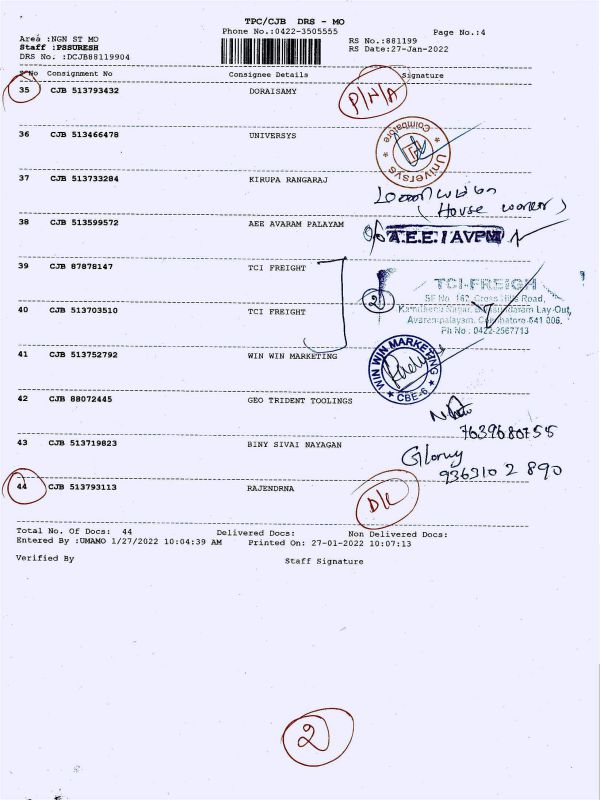 TPC/CJB DRS - MO
Phone No.:0422-3505555
Page No.:4
Area :NGN ST MO
RS No.:881199
Staff :PSSURESH
RS Date:27-Jan-2022
DRS No. :DCJB88119904
S.No Consignment No Consignee Details Signature
35 CJB 513793432 DORAISAMY P/N/A
36 CJB 513466478 UNIVERSYS
Universys * Coimbatore *
37 CJB 513733284 KIRUPA RANGARAJ
(House worker)
38 CJB 513599572 AEE AVARAM PALAYAM A.E.E. / AVPM
39 CJB 87878147 TCI FREIGHT
TCI-FREIGH
SF No. 162, Cross Hills Road,
40 CJB 513703510 TCI FREIGHT 2
Lay-Out,
Avarampalayam, Coimbatore-641 006.
Ph No : 0422-2567713
41 CJB 513752792 WIN WIN MARKETING
WIN WIN MARKETING * CBE-6 *
42 CJB 88072445 GEO TRIDENT TOOLINGS
7639680755
43 CJB 513719823 BINY SIVAI NAYAGAN
Glorry
9363102890
44 CJB 513793113 RAJENDRNA D/L
Total No. Of Docs: 44 Delivered Docs: Non Delivered Docs:
Entered By :UMAMO 1/27/2022 10:04:39 AM Printed On: 27-01-2022 10:07:13
Verified By Staff Signature
2